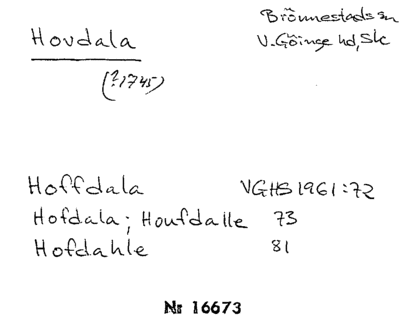 Hovdala
Brönnestads sn
V. Göinge hd, Sk
(?1745)
Hoffdala VGHS 1961:72
Hofdala; Houfdalle 73
Hofdahle 81
Nr 16673